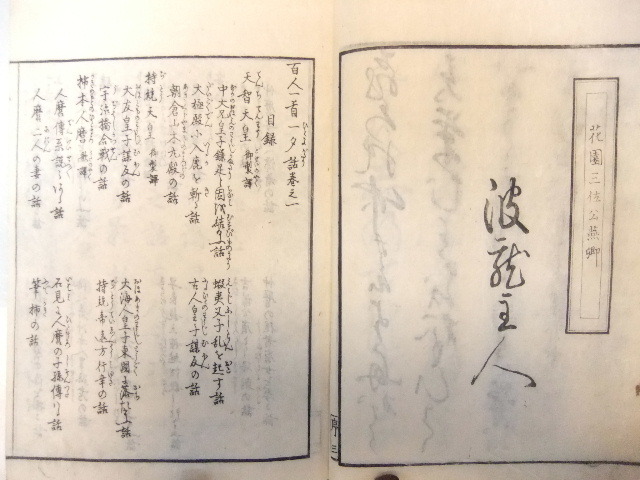 花園三位公燕卿
波龍主人
序 三
百人一首一夕話巻之一
目録
天智天皇 御製譯
中大兄皇子鎌足と因を結ぶ話
蝦夷父子乱を起す話
大極殿に入鹿を斬る話
古人皇子謀反の話
朝倉山木丸殿の話
持統天皇 御製譯
大友皇子謀反の話
大海人皇子東國に落ちたまふ話
宇治橋合戦の話
持統帝遠方行幸の話
柿本人麿 歌譯
人麿傳系説々ある話
石見に人麿の子孫傳はる話
人麿二人の妻の話
筆柿の話